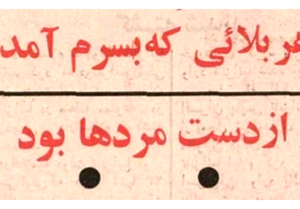 هر بلائی که بسرم آمد
از دست مردها بود